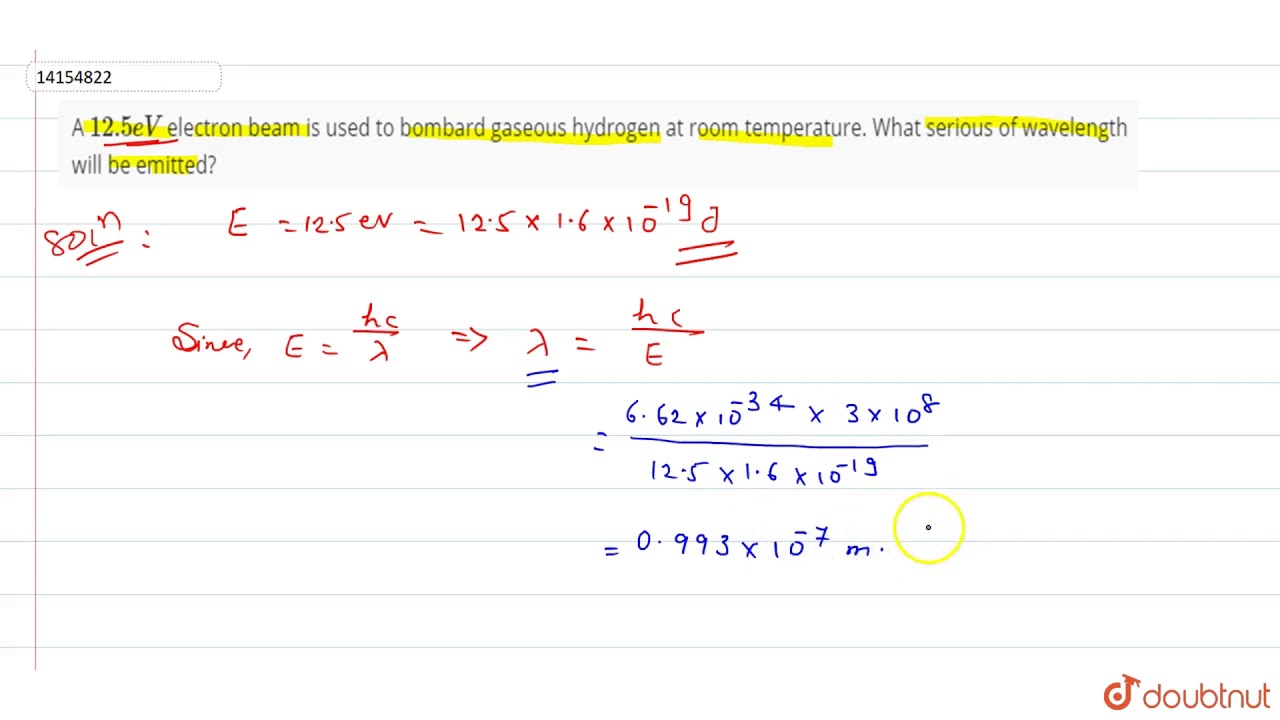 14154822
A 12.5eV electron beam is used to bombard gaseous hydrogen at room temperature. What serious of wavelength
will be emitted?
Solⁿ : E = 12.5 eV = 12.5 × 1.6 × 10⁻¹⁹ J
Since, E = hc/λ => λ = hc/E
= 6.62 × 10⁻³⁴ × 3 × 10⁸ / 12.5 × 1.6 × 10⁻¹⁹
= 0.993 × 10⁻⁷ m.
doubtnut